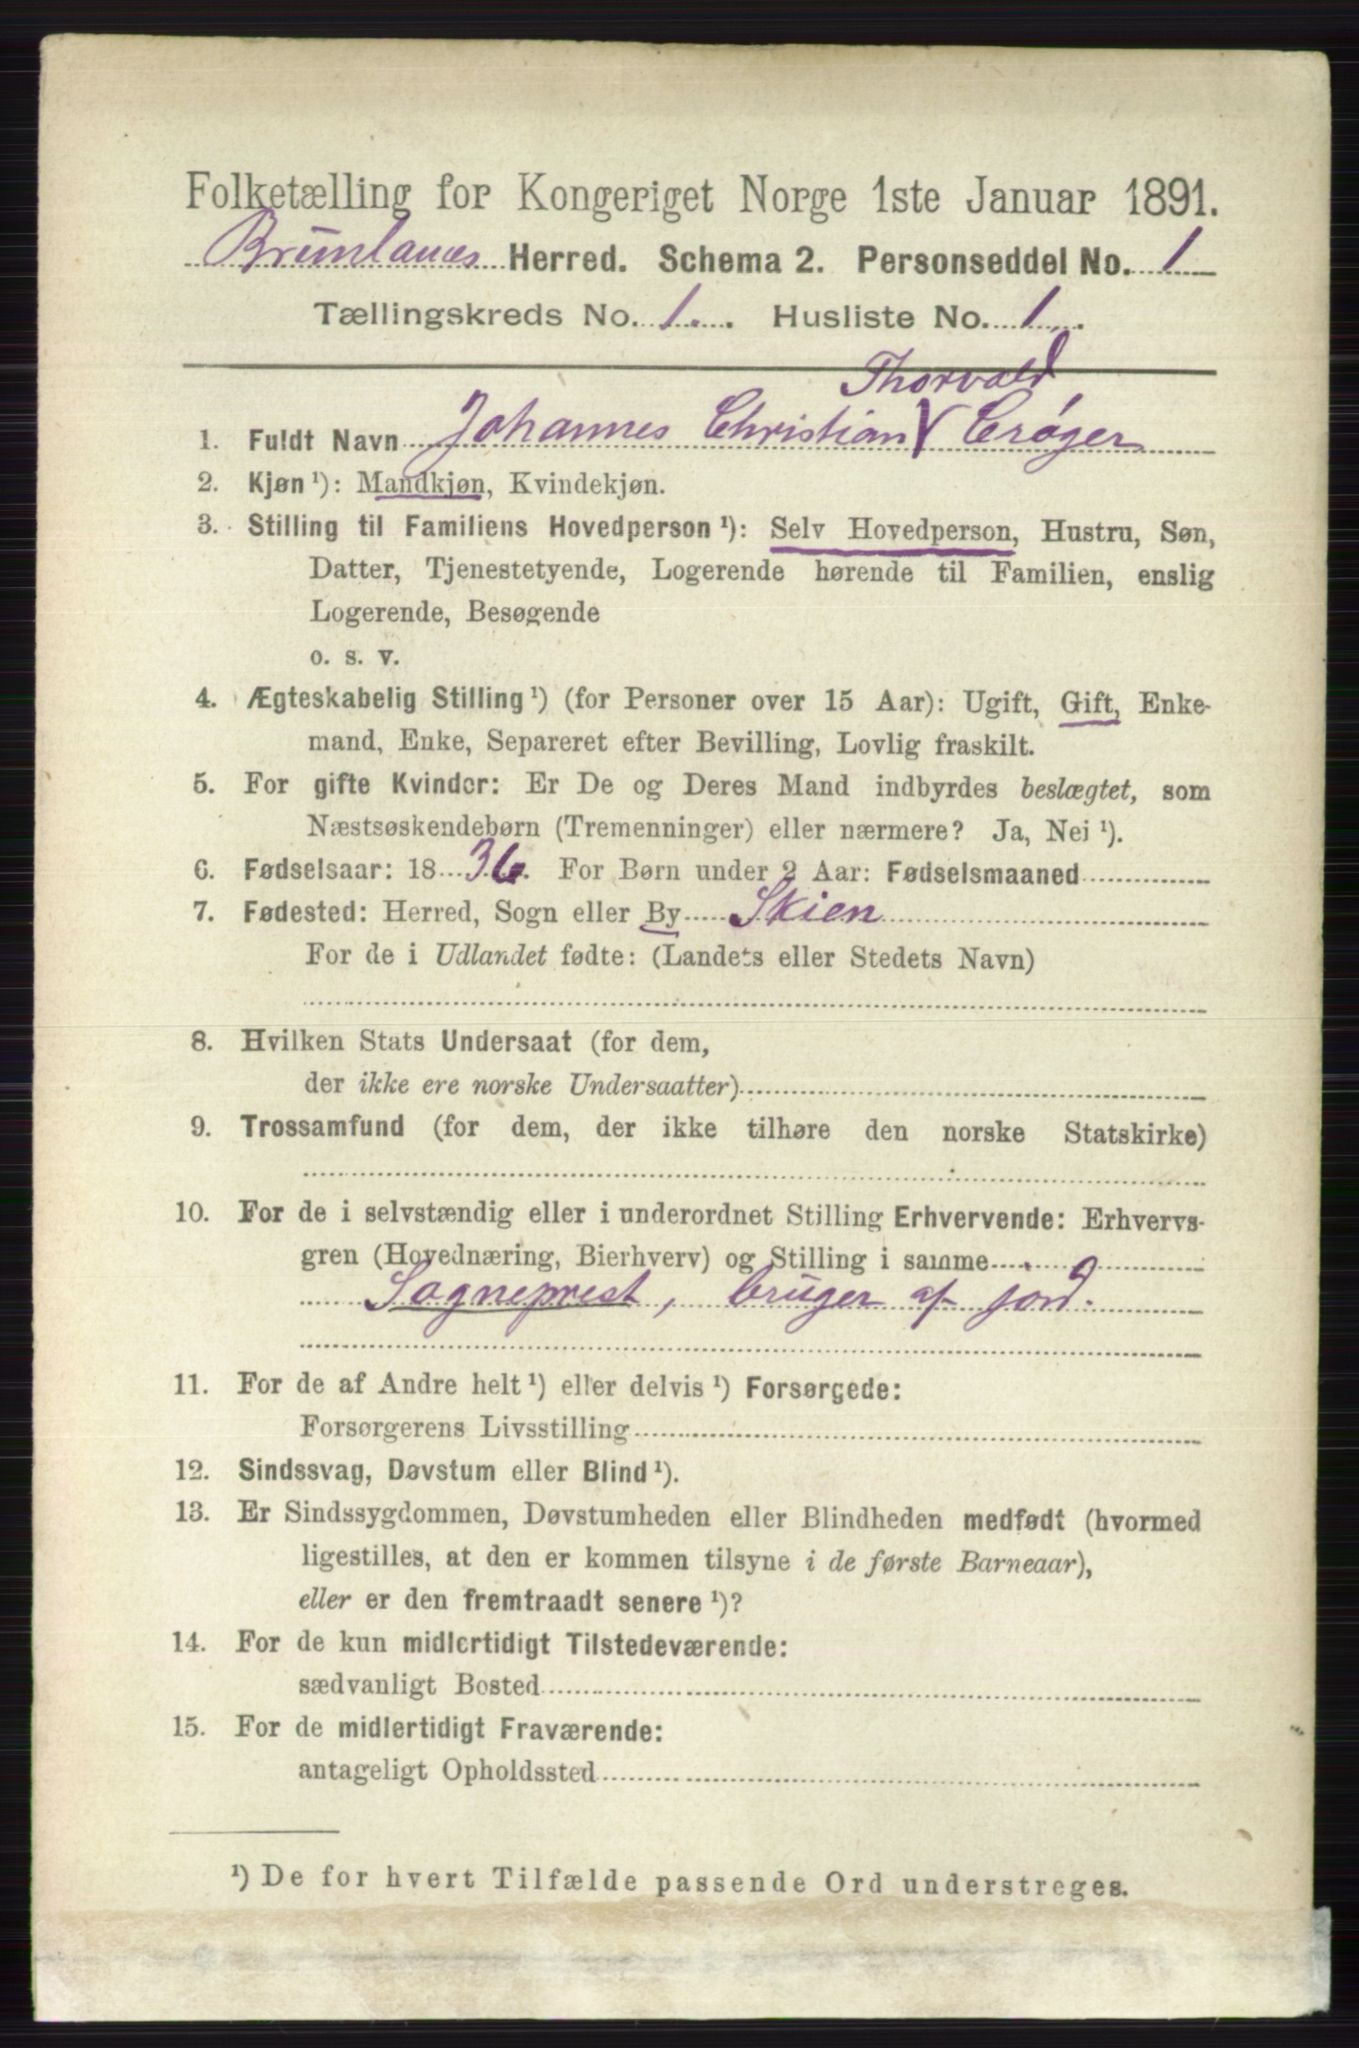 Folketælling for Kongeriget Norge 1ste Januar 1891.
Brunlanes Herred. Schema 2. Personseddel No. 1
Tællingskreds No. 1. Husliste No. 1.
Thorvald
1. Fuldt Navn Johannes Christian V Crøger
2. Kjøn ¹): Mandkjøn, Kvindekjøn.
3. Stilling til Familiens Hovedperson ¹): Selv Hovedperson, Hustru, Søn,
Datter, Tjenestetyende, Logerende hørende til Familien, enslig
Logerende, Besøgende
o. s. v.
4. Ægteskabelig Stilling ¹) (for Personer over 15 Aar): Ugift, Gift, Enke-
mand, Enke, Separeret efter Bevilling, Lovlig fraskilt.
5. For gifte Kvinder: Er De og Deres Mand indbyrdes beslægtet, som
Næstsøskendebørn (Tremenninger) eller nærmere? Ja, Nei ¹).
6. Fødselsaar: 1836. For Børn under 2 Aar: Fødselsmaaned
7. Fødested: Herred, Sogn eller By Skien
For de i Udlandet fødte: (Landets eller Stedets Navn)
8. Hvilken Stats Undersaat (for dem,
der ikke ere norske Undersaatter)
9. Trossamfund (for dem, der ikke tilhøre den norske Statskirke)
10. For de i selvstændig eller i underordnet Stilling Erhvervende: Erhvervs-
gren (Hovednæring, Bierhverv) og Stilling i samme
Sogneprest, bruger af jord.
11. For de af Andre helt ¹) eller delvis ¹) Forsørgede:
Forsørgerens Livsstilling
12. Sindssvag, Døvstum eller Blind ¹).
13. Er Sindssygdommen, Døvstumheden eller Blindheden medfødt (hvormed
ligestilles, at den er kommen tilsyne i de første Barneaar),
eller er den fremtraadt senere ¹)?
14. For de kun midlertidigt Tilstedeværende:
sædvanligt Bosted
15. For de midlertidigt Fraværende:
antageligt Opholdssted
¹) De for hvert Tilfælde passende Ord understreges.